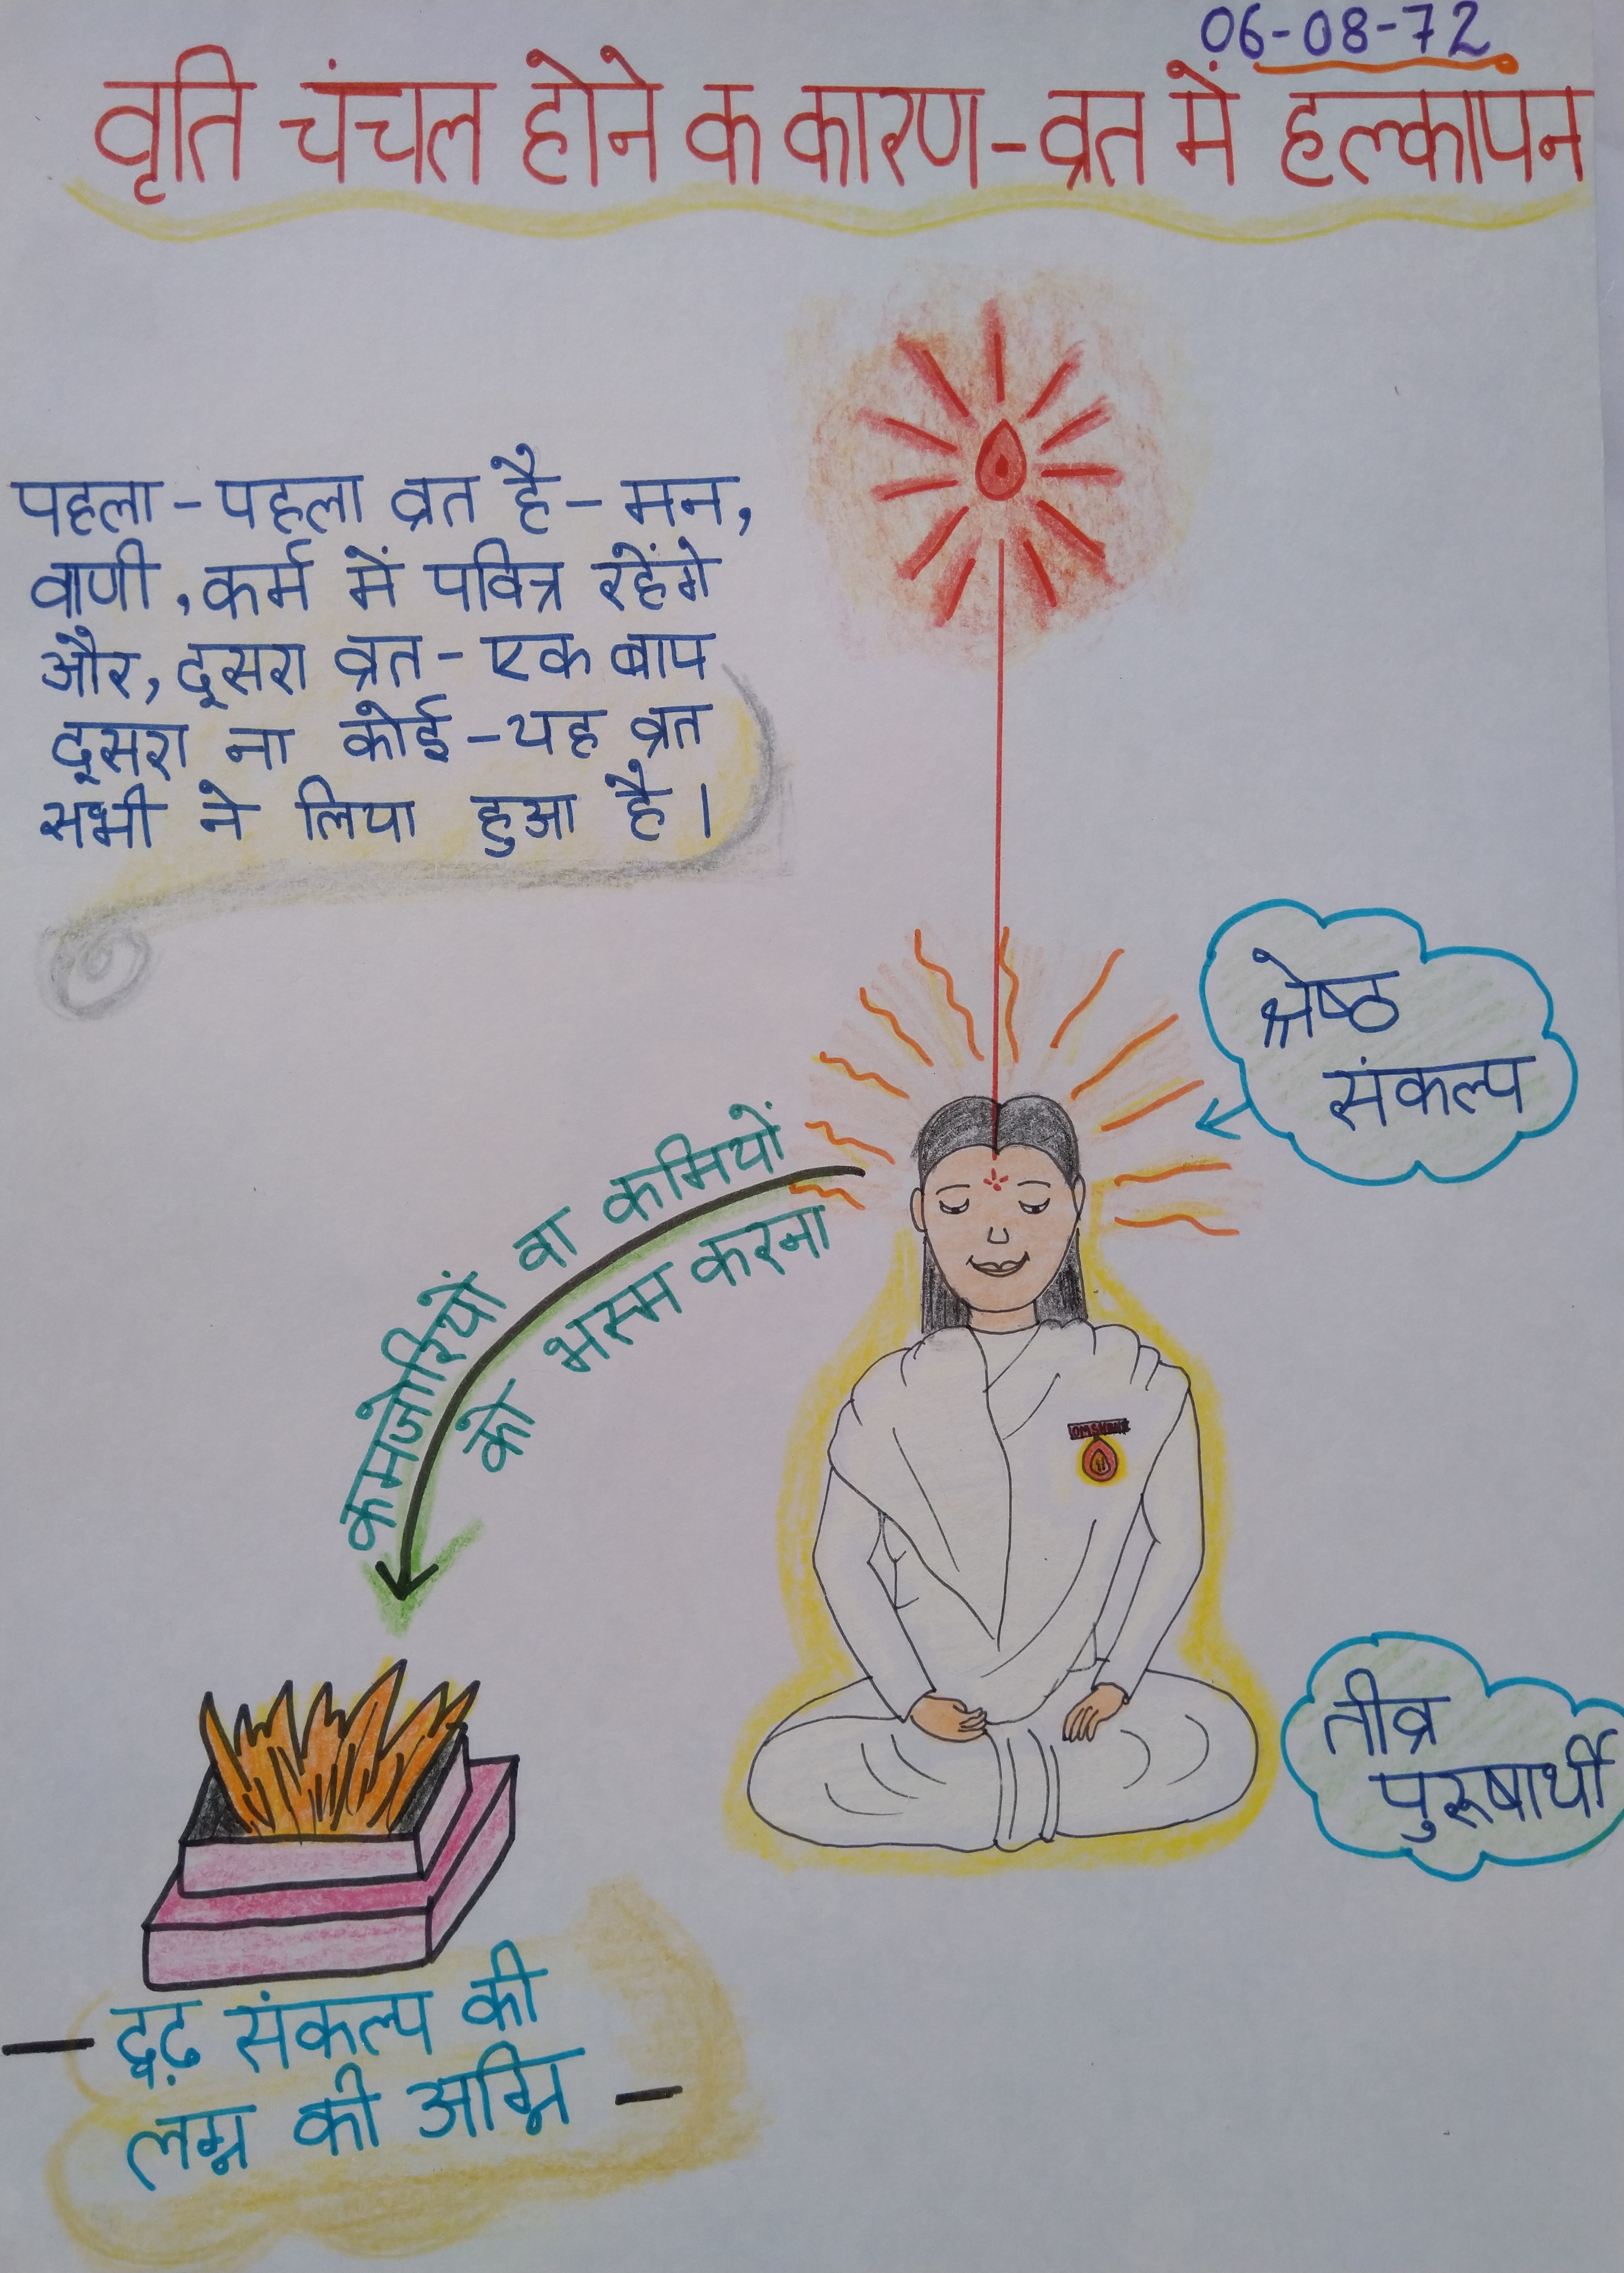 06-08-72
वृति चंचल होने क कारण-व्रत में हल्कापन
पहला-पहला व्रत है-मन,
वाणी, कर्म में पवित्र रहेंगे
और, दूसरा व्रत-एक बाप
दूसरा ना कोई-यह व्रत
सभी ने लिया हुआ है।
श्रेष्ठ
संकल्प
कमजोरियों वा कमियों
को भस्म करना
OM SHANTI
तीव्र
पुरूषार्थी
- दृढ़ संकल्प की
लग्न की अग्नि -